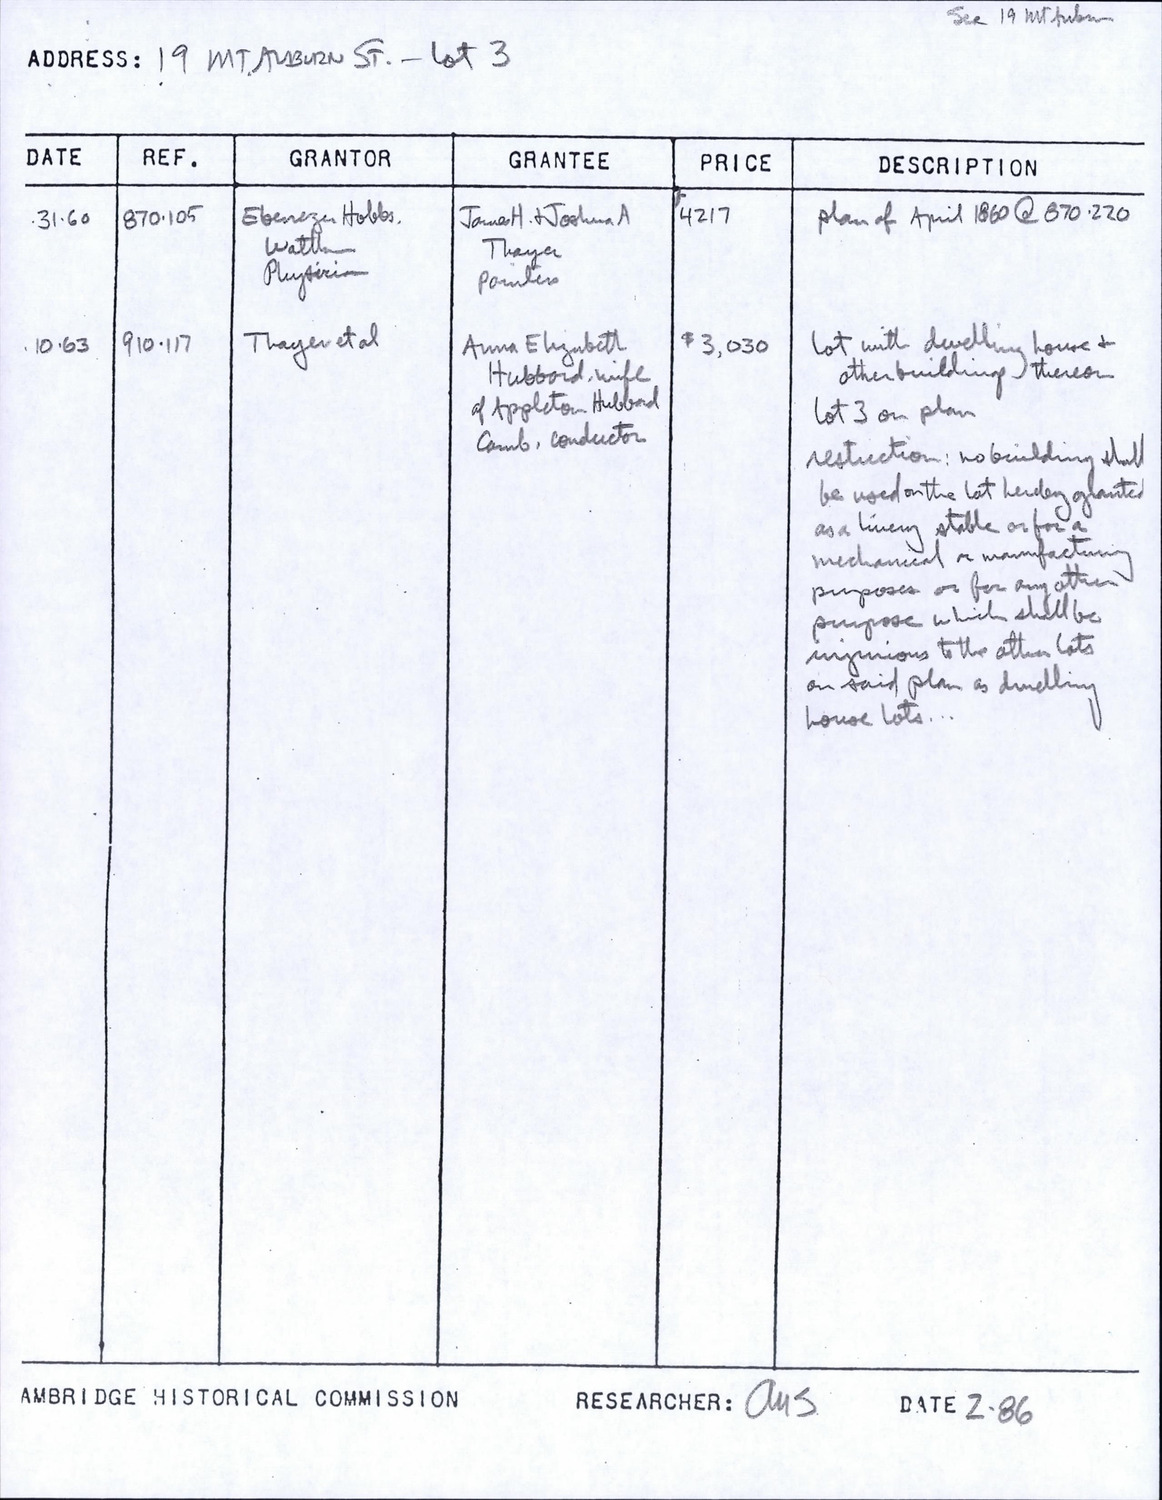 See 19 Mt Auburn
ADDRESS: 19 MT. AUBURN ST. – Lot 3
DATE REF. GRANTOR GRANTEE PRICE DESCRIPTION
.31.60 870.105 Ebenezer Hobbs, James H. & Joshua A 4217 plan of April 1860 @ 870.220
Waltham Thayer
Physician painters
.10.63 910.117 Thayer et al Anna Elizabeth $3,030 Lot with dwelling house &
Hubbard, wife other building(s) thereon
of Appleton Hubbard Lot 3 on plan
Camb. conductor
restriction: no building shall
be used on the lot hereby granted
as a livery stable or for a
mechanical or manufacturing
purposes or for any other
purpose which shall be
injurious to the other lots
on said plan as dwelling
house lots...
AMBRIDGE HISTORICAL COMMISSION RESEARCHER: DATE 2.86